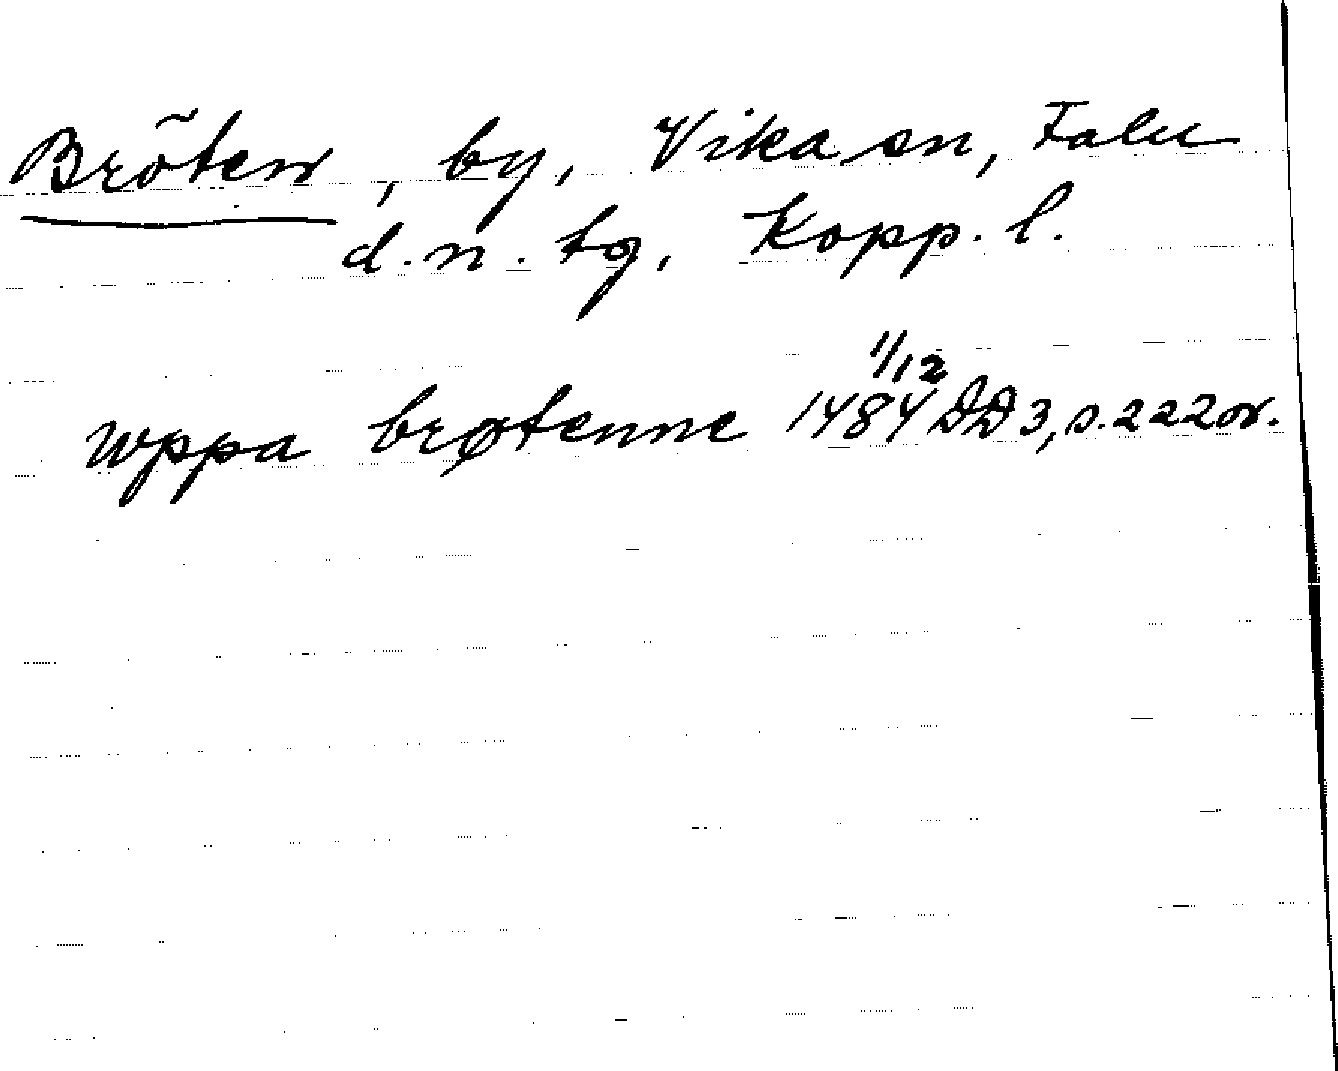 Bröten, by, Vika sn, Falu
d.n. tg, Kopp. l.
1/12
wppa brøtenne 1484 DD 3, s. 222 or.